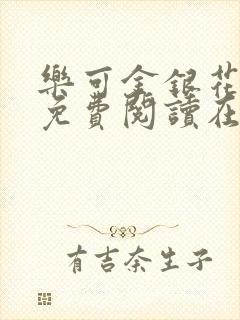 樂可金銀花
免費閱讀在
有吉奈生子